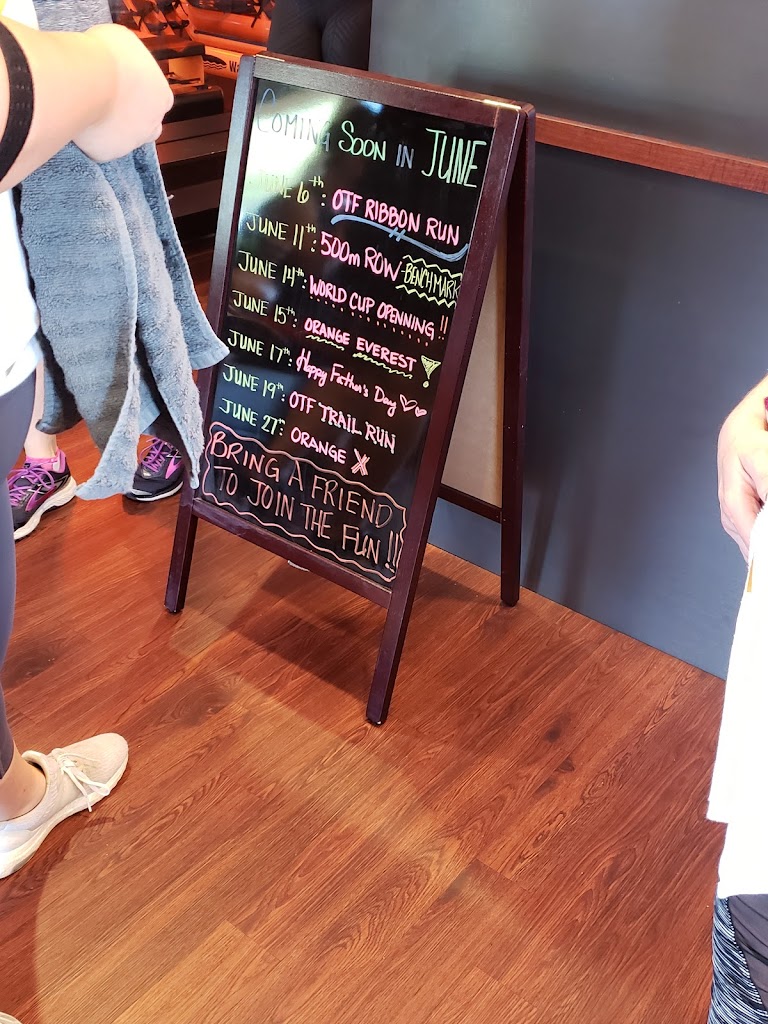 COMING SOON IN JUNE
JUNE 6th: OTF RIBBON RUN
JUNE 11th: 500m ROW BENCHMARK
JUNE 14th: WORLD CUP OPENNING !!
JUNE 15th: ORANGE EVEREST !
JUNE 17th: Happy Father's Day
JUNE 19th: OTF TRAIL RUN
JUNE 27th: ORANGE X
BRING A FRIEND
TO JOIN THE FUN !!